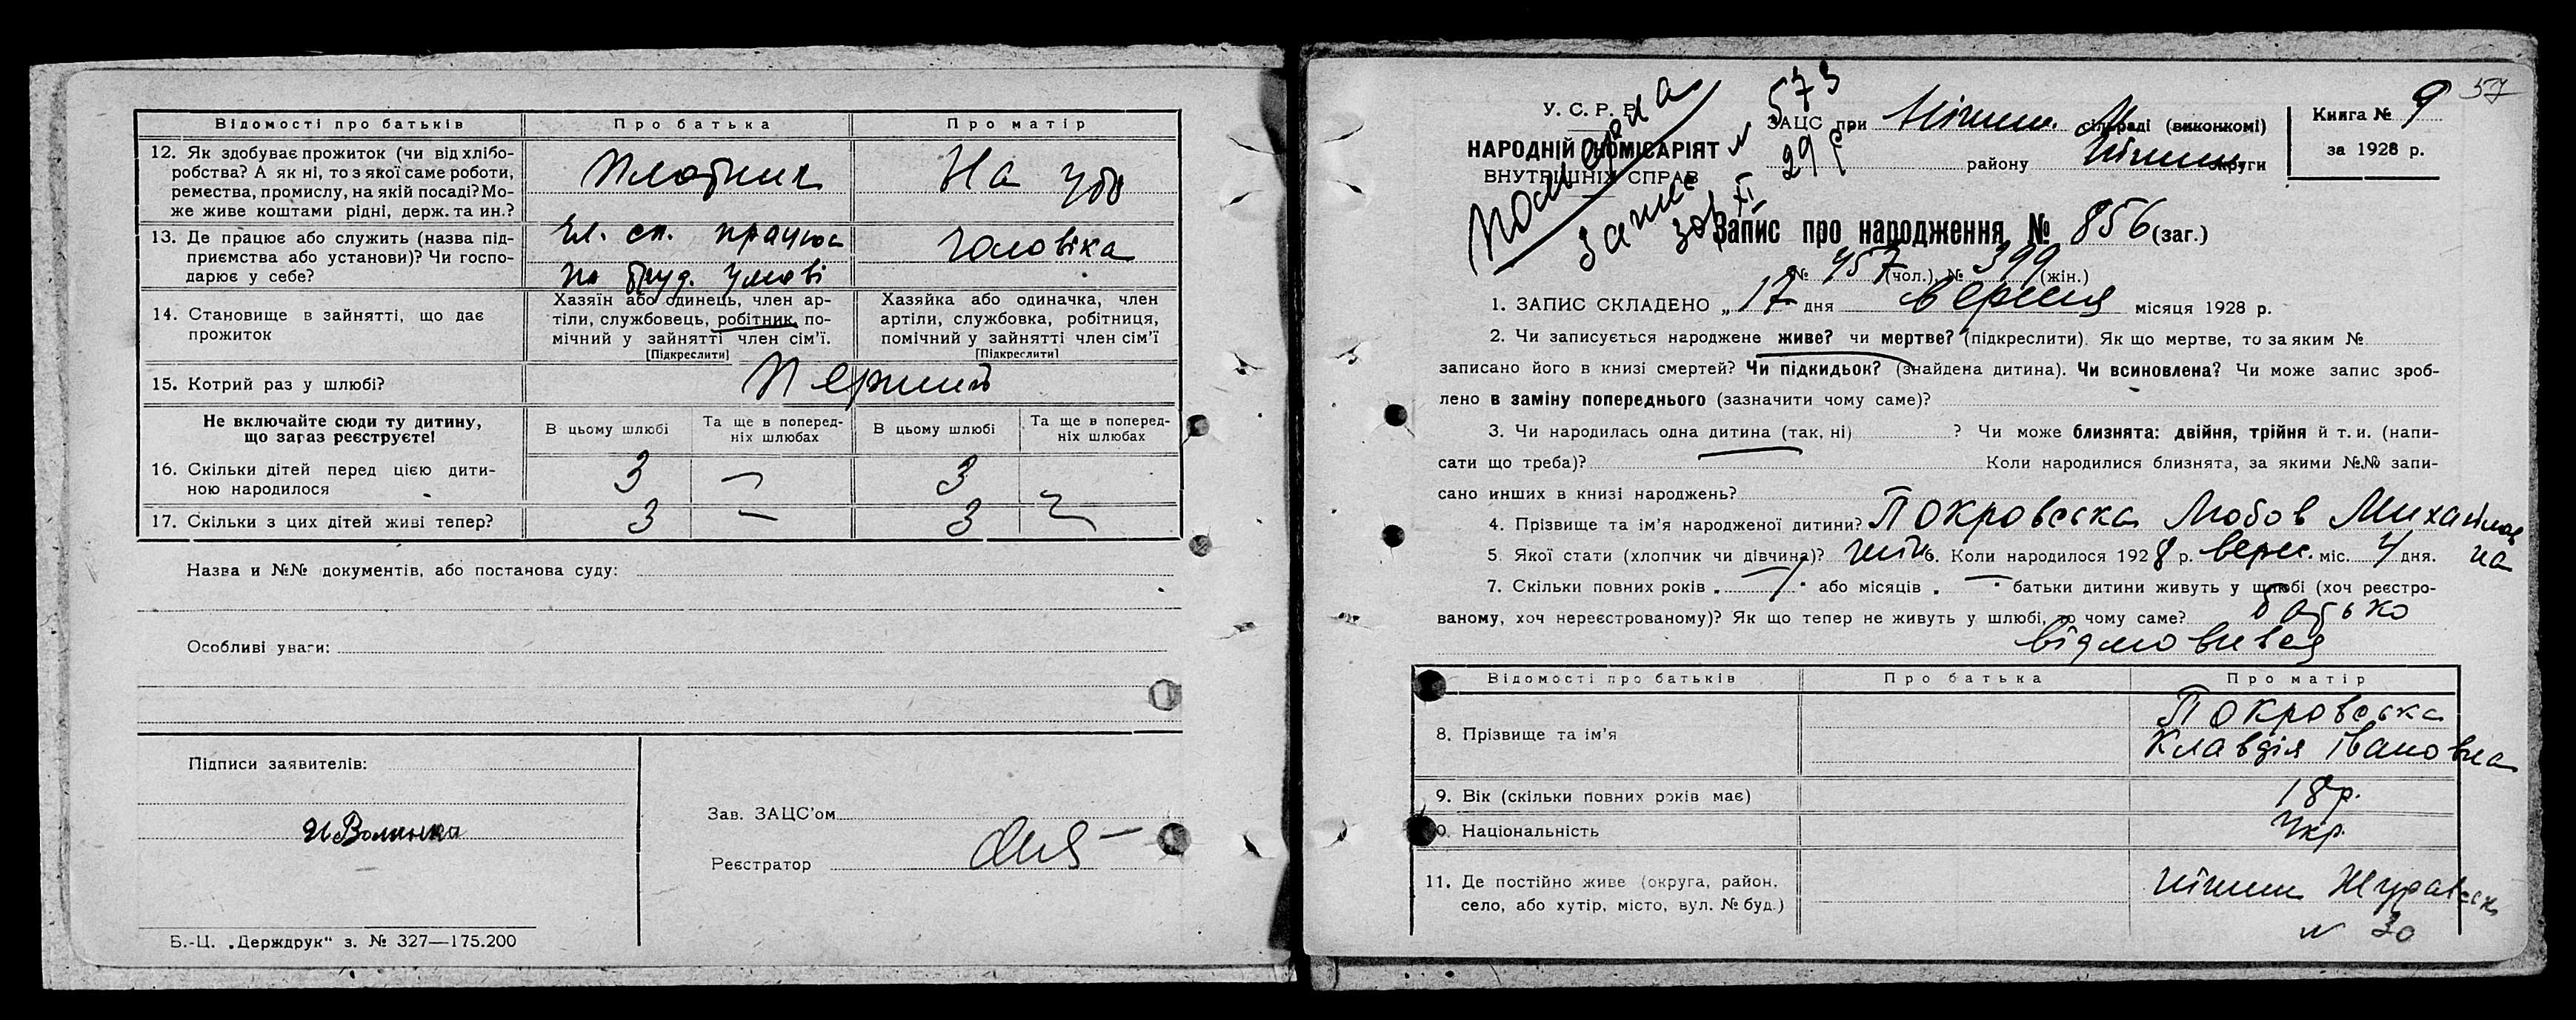 Відомості про батьків Про батька Про матір
12. Як здобуває прожиток (чи від хлібо-
робства? А як ні, то з якої саме роботи,
ремества, промислу, на якій посаді? Мо-
же живе коштами рідні, держ. та ин.?
Плотник На утр
13. Де працює або служить (назва під-
приємства або установи)? Чи госпо-
дарює у себе?
чл. сп. працює
по труд. умові
чоловіка
14. Становище в зайнятті, що дає
прожиток
Хазяїн або одинець, член ар-
тіли, службовець, робітник, по-
мічний у зайнятті член сім'ї.
[Підкреслити]
Хазяйка або одиначка, член
артіли, службовка, робітниця,
помічний у зайнятті член сім'ї
[Підкреслити]
15. Котрий раз у шлюбі? Перший
Не включайте сюди ту дитину,
що зараз реєструєте!
В цьому шлюбі Та ще в поперед-
ніх шлюбах В цьому шлюбі Та ще в поперед-
ніх шлюбах
16. Скільки дітей перед цією дити-
ною народилося 3 — 3
17. Скільки з цих дітей живі тепер? 3 — 3
Назва и №№ документів, або постанова суду:
Особливі уваги:
Підписи заявителів:
Волинка
Зав. ЗАЦС'ом
Реєстратор
Б.-Ц. „Держдрук" з. № 327—175.200
57
У. С. Р. Р.
НАРОДНІЙ КОМІСАРІЯТ
ВНУТРІШНІХ СПРАВ
запис
573
29
XI
ЗАЦС при Ніжин. сільраді (виконкомі)
району Ніжин округи
Книга № 9
за 1928 р.
Запис про народження № 856 (заг.)
№ 457 (чол.), № 399 (жін.)
1. ЗАПИС СКЛАДЕНО „ 17 дня вересня місяця 1928 р.
2. Чи записується народжене живе? чи мертве? (підкреслити). Як що мертве, то за яким №
записано його в книзі смертей? Чи підкидьок? (знайдена дитина). Чи всиновлена? Чи може запис зроб-
лено в заміну попереднього (зазначити чому саме)?
3. Чи народилась одна дитина (так, ні) ? Чи може близнята: двійня, трійня й т. и. (напи-
сати що треба)? Коли народилися близнята, за якими №№ запи-
сано инших в книзі народжень?
4. Прізвище та ім'я народженої дитини? Покровська Любов Михайлов
на
5. Якої стати (хлопчик чи дівчина)? жін 6. Коли народилося 1928 р. верес. міс. 4 дня.
7. Скільки повних років „ — " або місяців „ — " батьки дитини живуть у шлюбі (хоч реєстро-
ваному, хоч нереєстрованому)? Як що тепер не живуть у шлюбі, то чому саме? батько
відмовився
Відомості про батьків Про батька Про матір
8. Прізвище та ім'я Покровська
Клавдія Івановна
9. Вік (скільки повних років має) 18 р.
10. Національність Укр.
11. Де постійно живе (округа, район,
село, або хутір, місто, вул. № буд.)
Ніжин Журавськ
№ 30